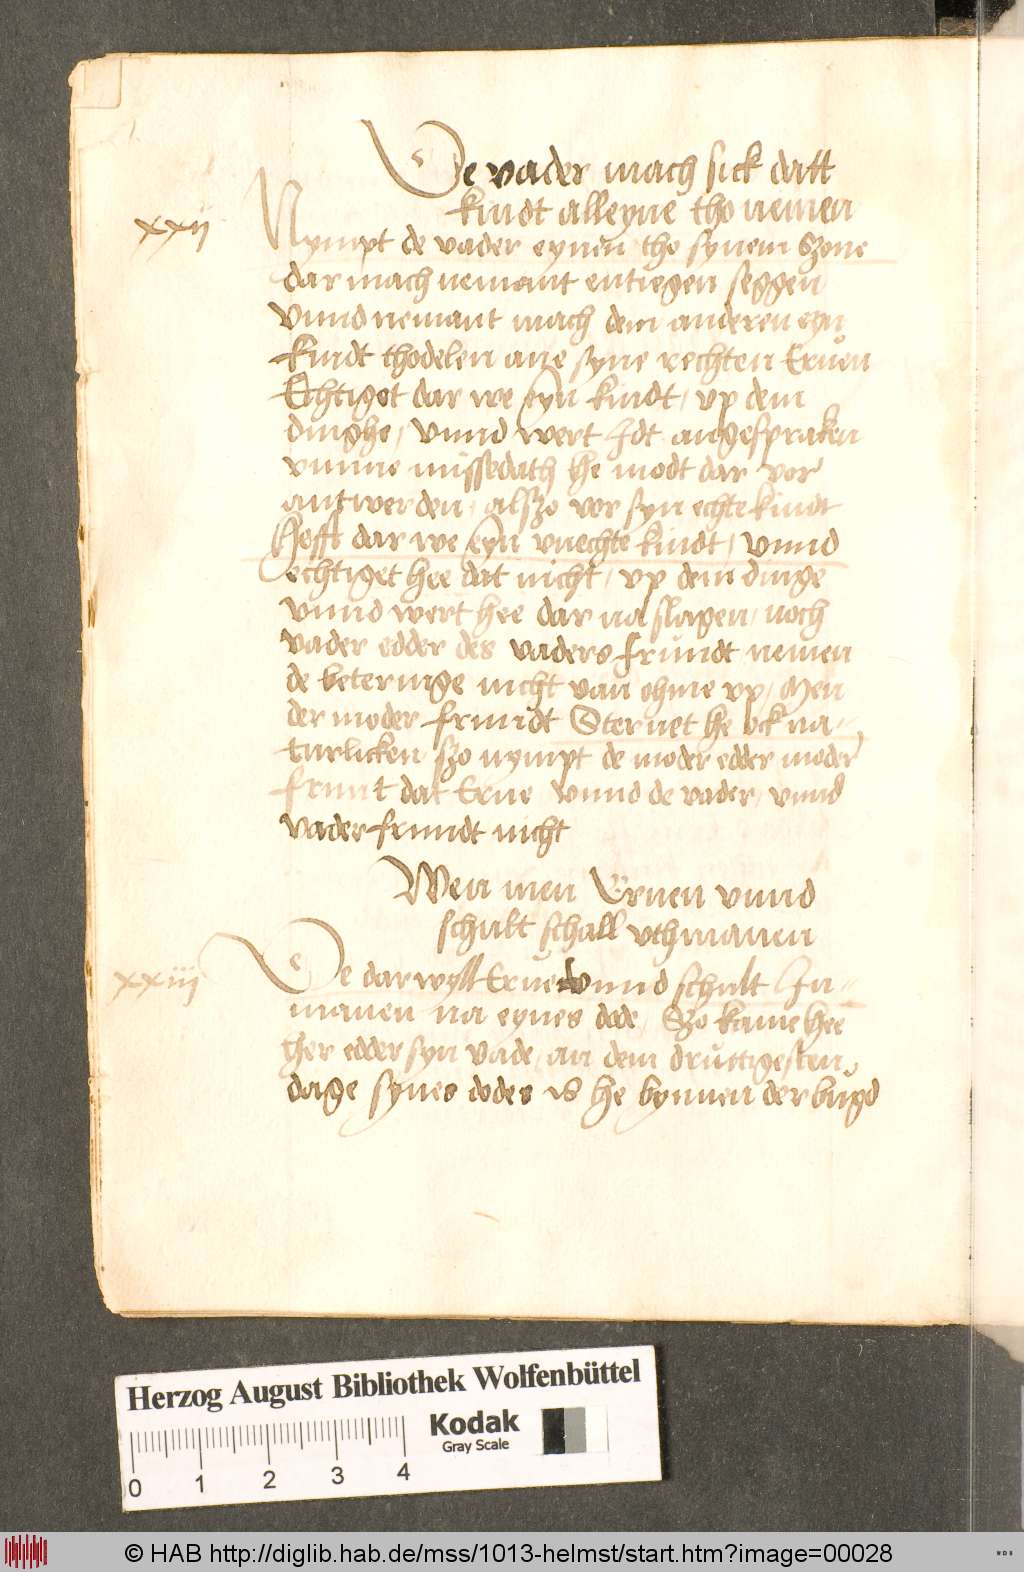 De vader mach sick datt
kindt alleyne tho nemen
xxij
Nympt de vader eynen tho synem Szone
dar mach nemant entiegen seggen
vnnd nemant mach dem anderen eyn
kindt thodelen ane syne rechten Eruen
Echtiget dar we eyn kindt / vp dem
dinghe / vnnd wert Jdt angespraken
vmme missedath he modt dar vor
antwerden / alszo vor syn echte kindt
Hefft dar we eyn vnechte kindt / vnnd
echtiget hee dat nicht / vp dem dinge
vnnd wert hee dar na slagen / noch
vader edder des vaders frundt nemen
de beteringe nicht van ohme vp / Men
der moder frundt Steruet he ock na-
turlicken szo nympt de moder edder moder
frunt dat Erue vnnd de vader / vnnd
vader frundt nicht
Wen men Eruen vnnd
schult schall vthmanen
xxiij
De dar wyll Erue vnnd schult In-
manen na eynes dode / Szo kame hee
her edder syn vade / an dem druttigesten
dage synes dodes is he bynnen der bugd
Herzog August Bibliothek Wolfenbüttel
Kodak
Gray Scale
0 1 2 3 4
© HAB http://diglib.hab.de/mss/1013-helmst/start.htm?image=00028